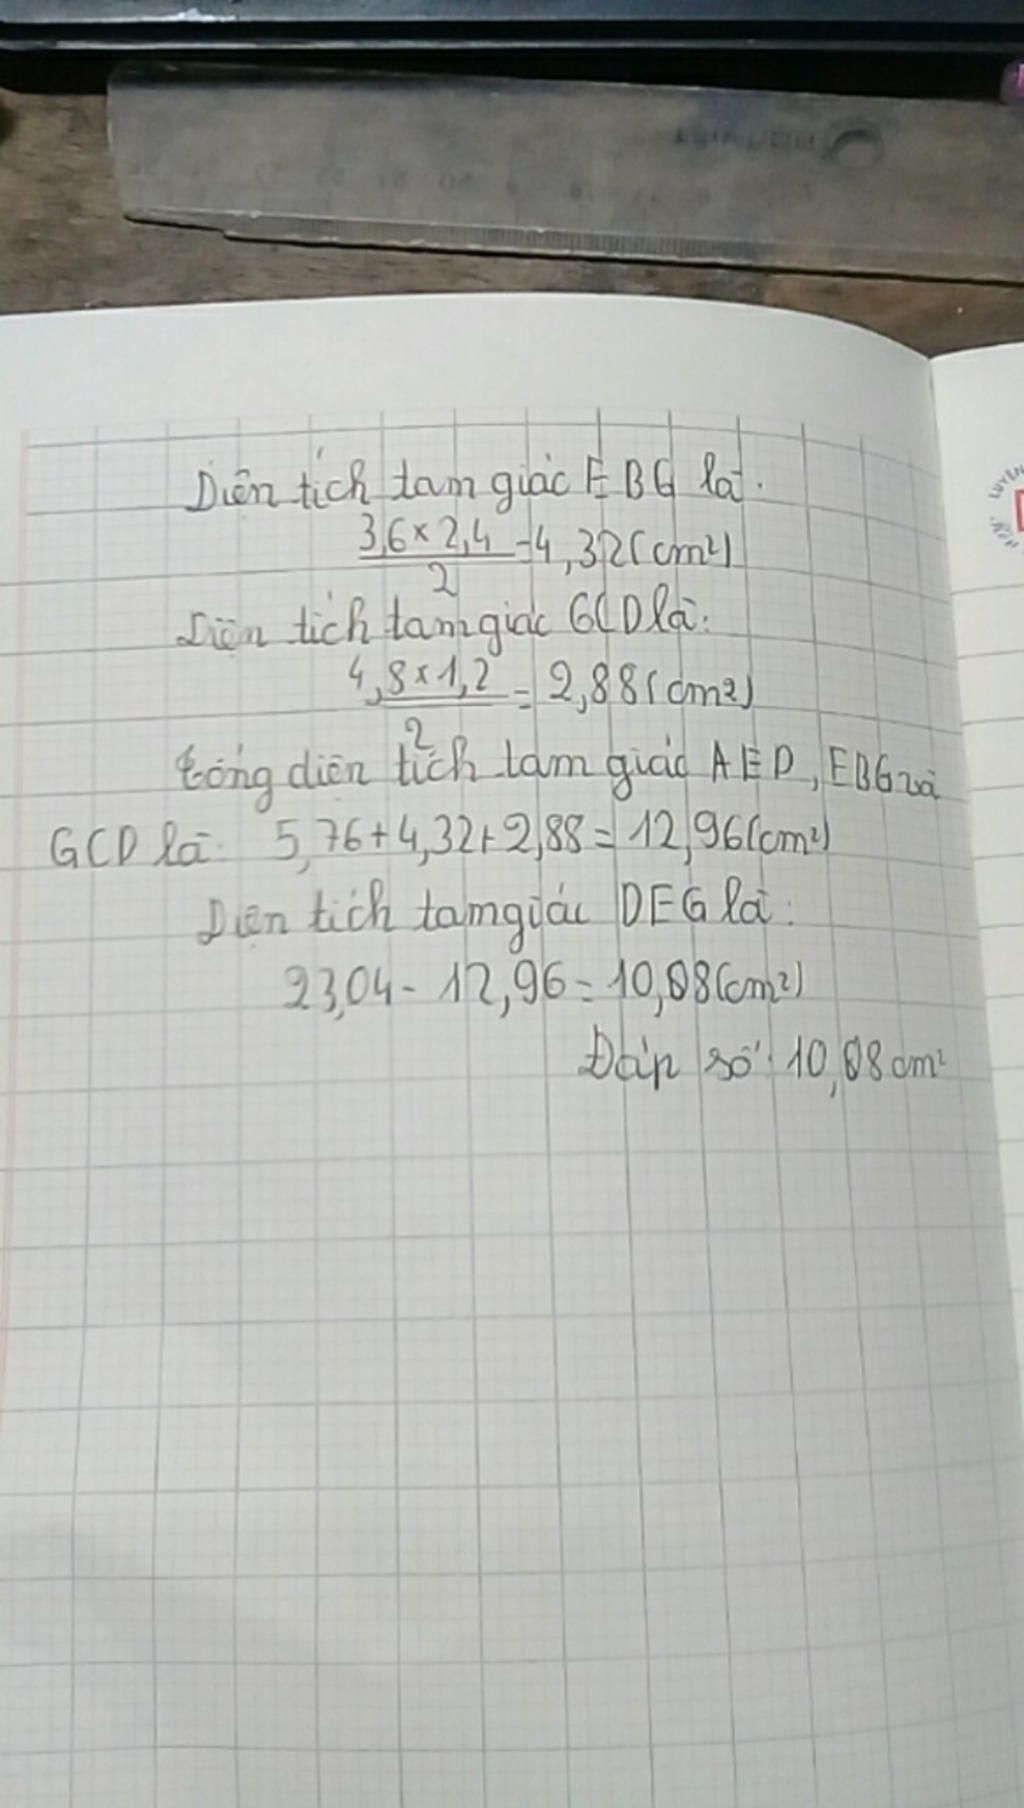 Diện tích tam giác EBG là:
3,6 × 2,4
2
= 4,32 (cm²)
Diện tích tam giác GCD là:
4,8 × 1,2
2
= 2,88 (cm²)
tổng diện tích tam giác AED, EBG và
GCD là: 5,76 + 4,32 + 2,88 = 12,96 (cm²)
Diện tích tam giác DEG là:
23,04 - 12,96 = 10,08 (cm²)
Đáp số: 10,08 cm²
LUYEN